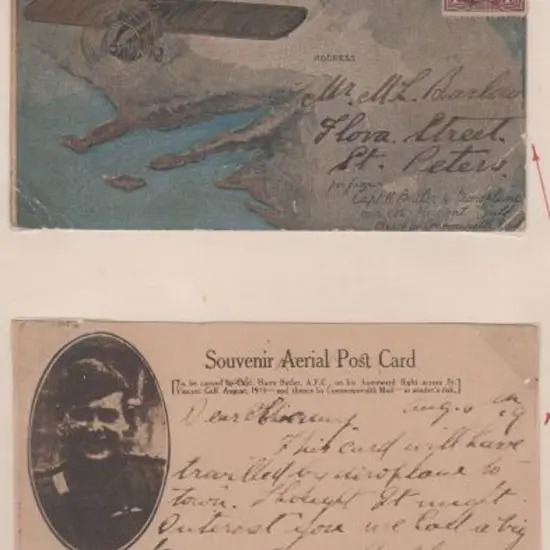 ADDRESS
Mr. M L. Barlow
Flora. Street.
St. Peters.
per favor
Capt. H. Butler & Monoplane
Souvenir Aerial Post Card
[To be carried by Capt. Harry Butler, A.F.C., on his homeward flight across St.
Vincent Gulf, August, 1919—and thence by Commonwealth Mail—at sender's risk.]
Dear
This card will have
travelled by airoplane to
town. I thought it might
interest you we had a big